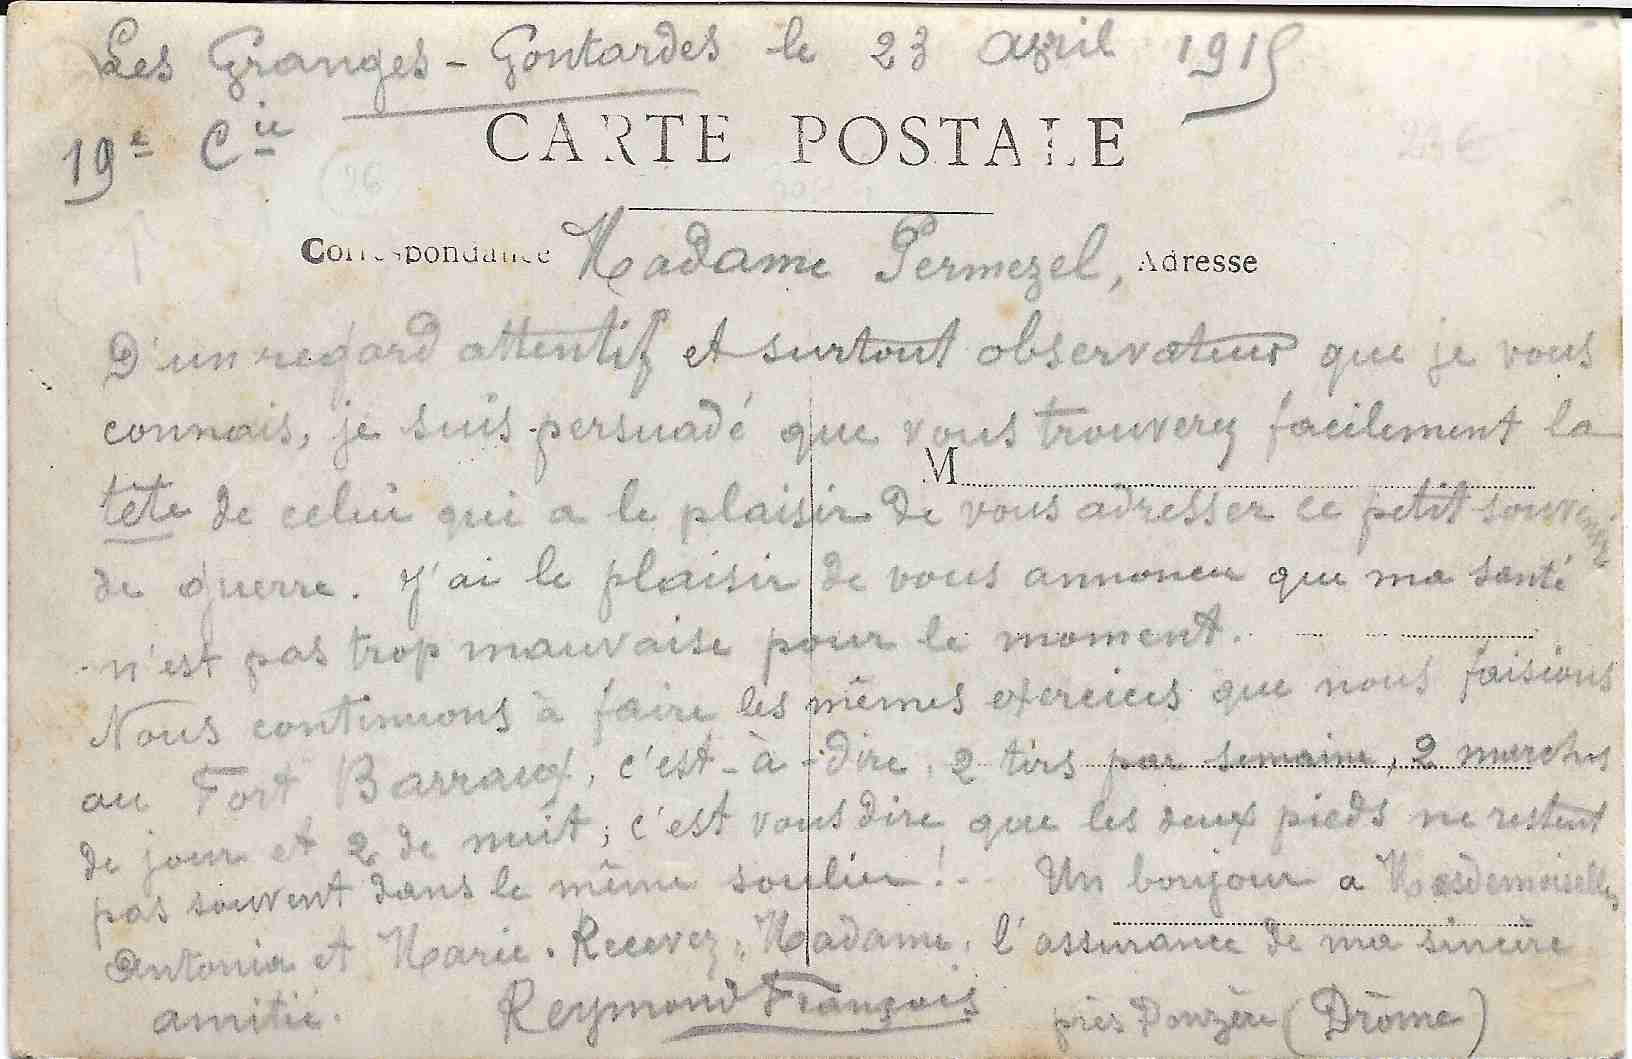 Les Granges-Gontardes le 23 avril 1915
19e Cie
CARTE POSTALE
26
Correspondance
Madame Permezel,
Adresse
D'un regard attentif et surtout observateur que je vous
connais, je suis persuadé que vous trouverez facilement la
M
tête de celui qui a le plaisir de vous adresser ce petit souvenir
de guerre. J'ai le plaisir de vous annoncer que ma santé
n'est pas trop mauvaise pour le moment.
Nous continuons à faire les mêmes exercices que nous faisions
au Fort Barraux, c'est-à-dire, 2 tirs par semaine, 2 marches
de jour et 2 de nuit, c'est vous dire que les deux pieds ne restent
pas souvent dans le même soulier! Un bonjour a Mesdemoiselles
Antonia et Marie. Recevez, Madame, l'assurance de ma sincère
amitié.
Reymond François
près Donzère (Drôme)